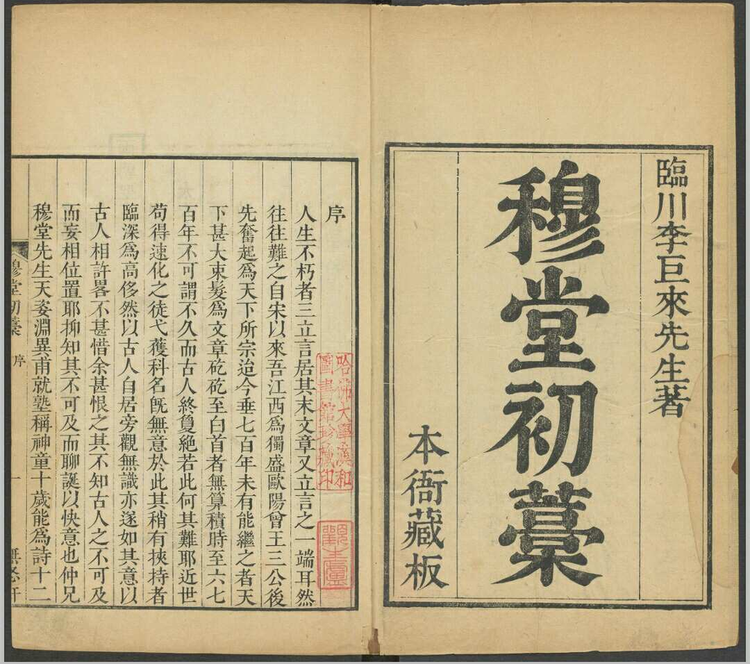 臨川李巨來先生著
穆堂初藁
本衙藏板
序
人生不朽者三立言居其末文章又立言之一端耳然
往往難之自宋以來吾江西爲獨盛歐陽曾王三公後
先奮起爲天下所宗迨今垂七百年未有能繼之者天
下甚大束髮爲文章矻矻至白首者無算積時至六七
百年不可謂不久而古人終敻絕若此何其難耶近世
苟得速化之徒弋獲科名旣無意於此其稍有挾持者
臨深爲高侈然以古人自居旁觀無識亦遂如其意以
古人相許畧不甚惜余甚恨之其不知古人之不可及
而妄相位置耶抑知其不可及而聊誕以快意也仲兄
穆堂先生天姿淵異甫就塾稱神童十歲能爲詩十二
穆堂初藁
序
一
哈佛大學漢和
圖書館珍藏印